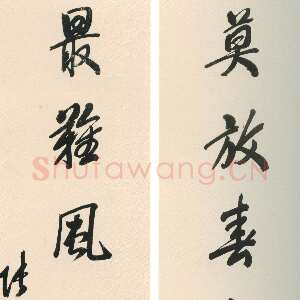 莫放春
最難風
Shufawang.CN